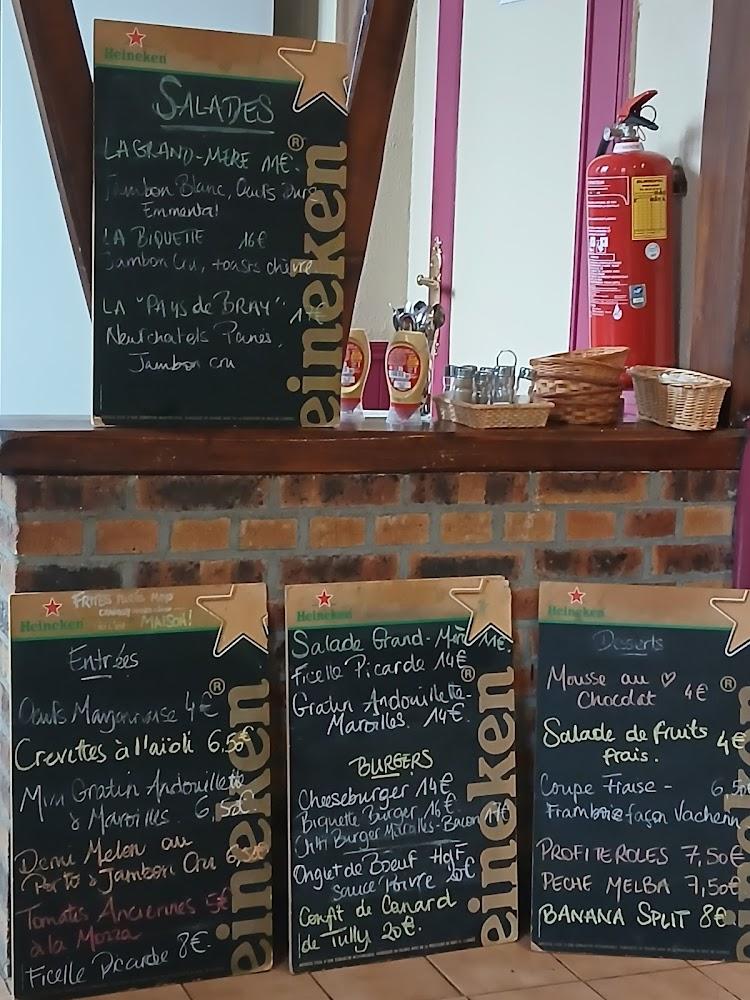 Heineken
SALADES
LA GRAND-MERE 11€.
Jambon Blanc, Oeufs Durs
Emmental
LA BIQUETTE 16€
Jambon Cru, toasts chèvre
LA "PAYS de BRAY"
Neufchatels Panés,
Jambon cru
eineken
Heineken
FRITES
MAISON!
Entrées
Oeufs Mayonnaise 4€
Crevettes à l'aïoli 6.50€
Mini Gratin Andouillette
& Maroilles. 6,50€.
Demi Melon au
Porto & Jambon Cru 6,50€
Tomates Anciennes 5€
à la Mozza
Ficelle Picarde 8€.
eineken
Heineken
Salade Grand-Mère 11€
Ficelle Picarde 14€
Gratin Andouillette-
Maroilles. 14€.
BURGERS
Cheeseburger 14€
Biquette Burger 16€
Chti Burger Maroilles-Bacon 17€
Onglet de Boeuf
sauce Poivre 20€
Confit de Canard
de Tully 20€.
eineken
Heineken
Desserts
Mousse au ♡
Chocolat 4€
Salade de fruits 4€
frais.
Coupe Fraise - 6.50
Framboise façon Vacherin
PROFITEROLES 7,50€
PECHE MELBA 7,50€
BANANA SPLIT 8€